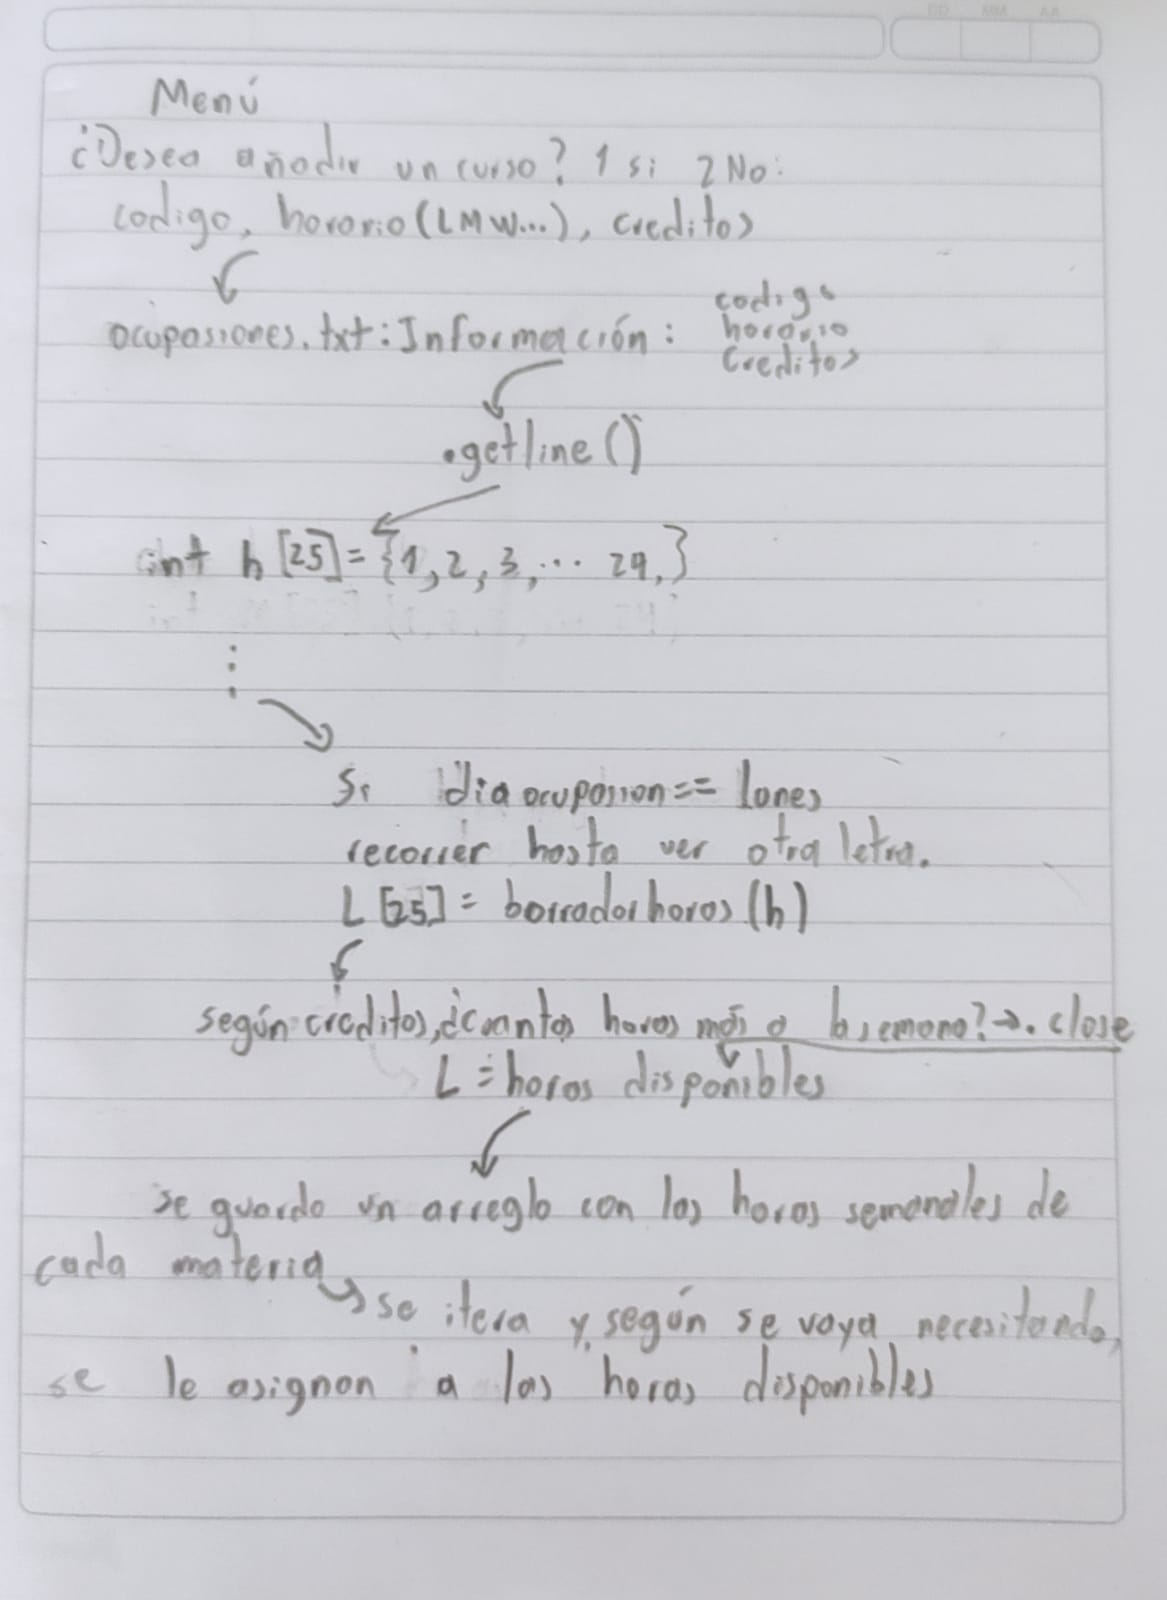 DD MM AA
Menú
¿Desea añadir un curso? 1 si 2 No:
codigo, horario (LMW...), creditos
ocupasiones.txt: Información: codigo
horario
creditos
.getline()
int h [25] = {1, 2, 3, ... 24,}
⋮
Si dia ocupasion == lunes
recorrer hasta ver otra letra.
L [25] = borradorhoras (h)
según creditos, ¿cuantas horas más a la semana? → . close
L = horas disponibles
se guarda un arreglo con las horas semanales de
cada materia
se itera y, según se vaya necesitando,
se le asignan a las horas disponibles